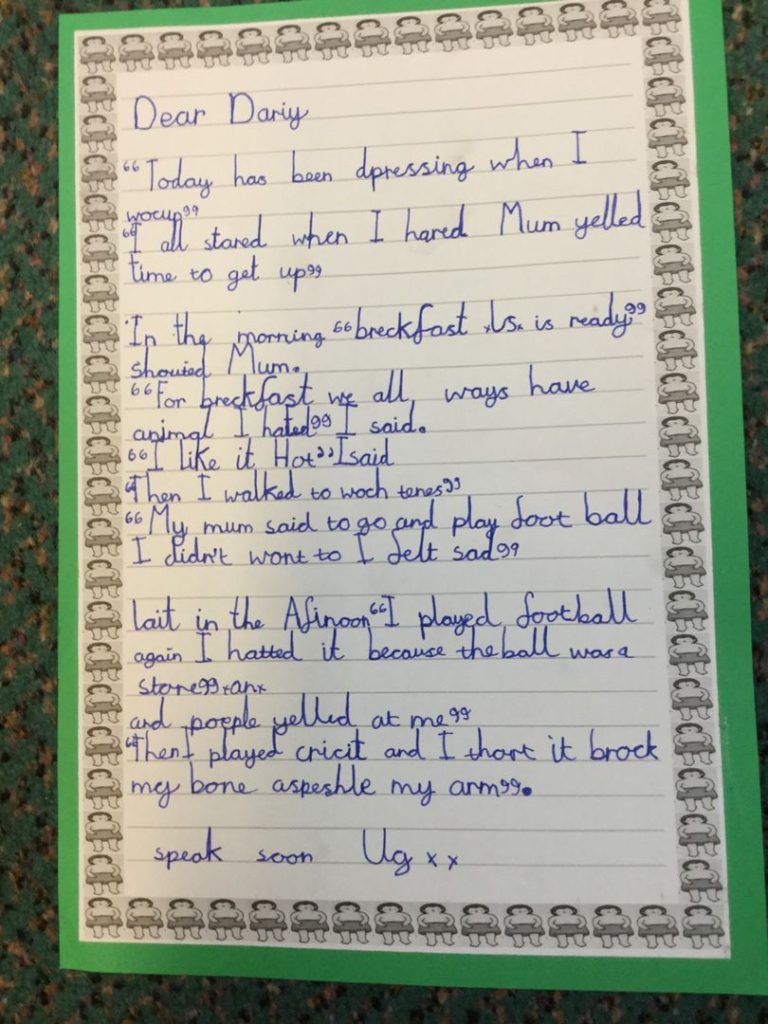 Dear Dariy
"Today has been dpressing when I
wocup"
"I all stared when I hared Mum yelled
time to get up"
In the morning "breckfast xUsx is ready"
shouted Mum.
"For breckfast we all, ways have
animal I hated" I said.
"I like it Hot" I said
"Then I walked to woch tenes"
"My mum said to go and play foot ball
I didn't wont to I felt sad"
lait in the Afinoon "I played football
again I hatted it because the ball was a
stone" xanx
and poeple yelled at me"
"Then I played cricit and I thort it brock
mey bone aspeshle my arm".
speak soon Ug x x